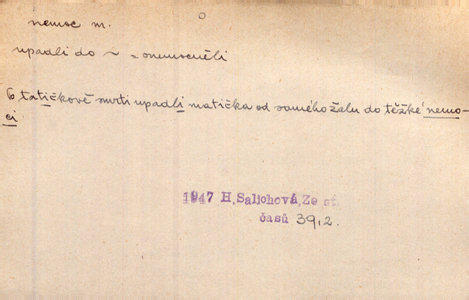 nemoc m.
upadli do ~ = onemocněli
6 tatičkově smrti upadli matička od samého žalu do těžké nemo-
ci
1947 H. Saljchová, Ze st.
časů 39,2.